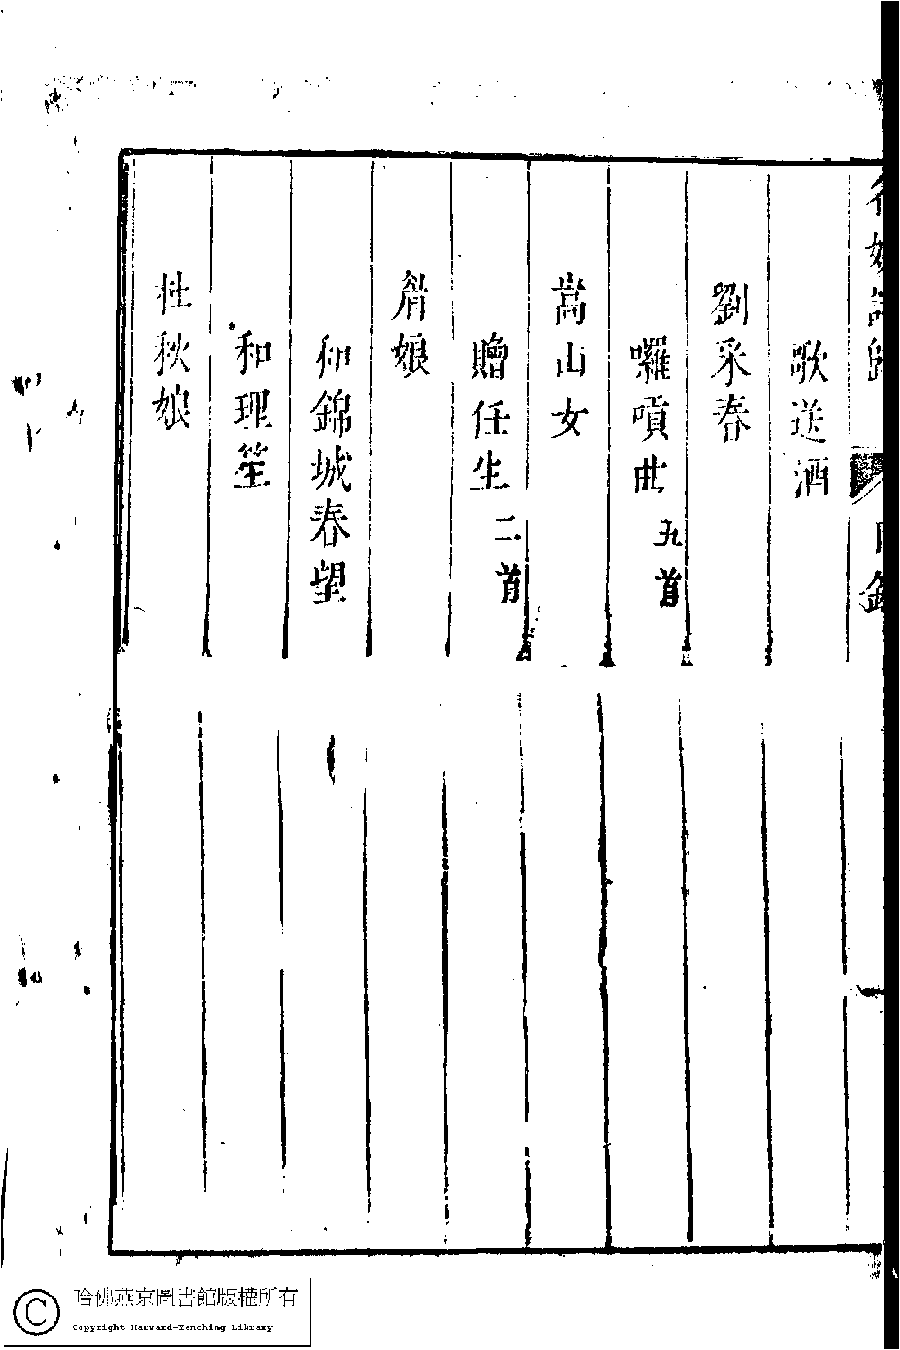 歌送酒
劉采春
囉嗊曲 五首
嵩山女
贈任生 二首
眉娘
和錦城春望
和理笙
杜秋娘
哈佛燕京圖書館版權所有
Copyright Harvard-Yenching Library